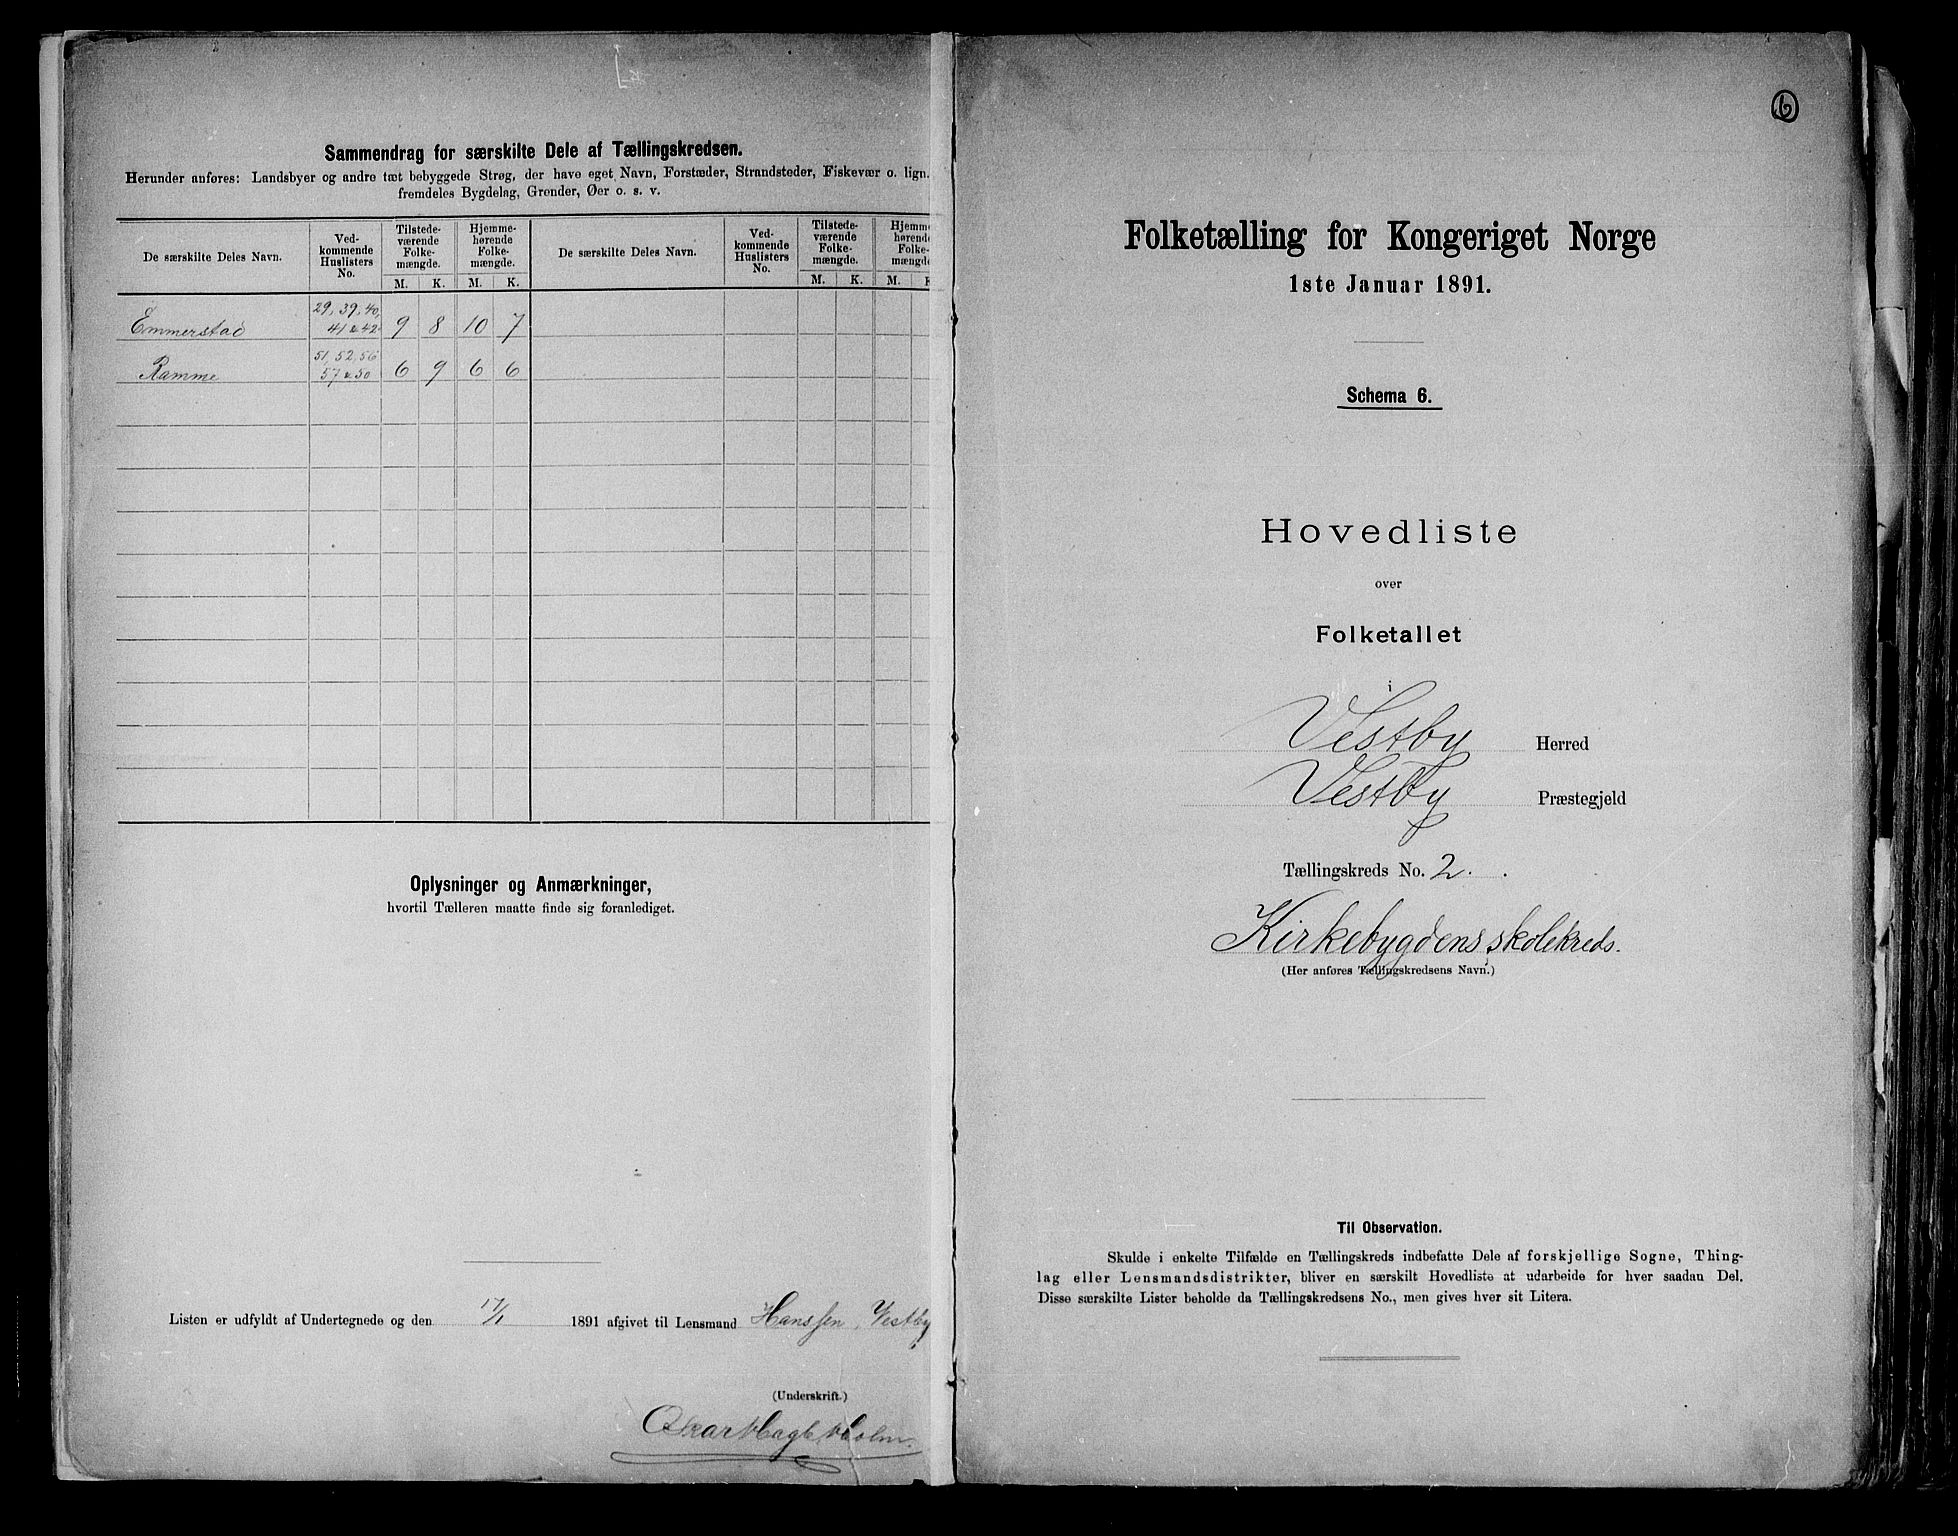 Sammendrag for særskilte Dele af Tællingskredsen.
Herunder anføres: Landsbyer og andre tæt bebyggede Strøg, der have eget Navn, Forstæder, Strandsteder, Fiskevær o. lign.
fremdeles Bygdelag, Grender, Øer o. s. v.
De særskilte Deles Navn. Ved-kommende Huslisters No. Tilstede-værende Folke-mængde. Hjemme-hørende Folke-mængde. De særskilte Deles Navn. Ved-kommende Huslisters No. Tilstede-værende Folke-mængde. Hjemme-hørende Folke-mængde.
M. K. M. K. M. K. M. K
Emmerstad 29, 39, 40, 41 & 42 9 8 10 7
Ramme 51, 52, 56 57 & 50 6 9 6 6
Oplysninger og Anmærkninger,
hvortil Tælleren maatte finde sig foranlediget.
Listen er udfyldt af Undertegnede og den 17/1 1891 afgivet til Lensmand Hanssen, Vestby
(Underskrift.)
6
Folketælling for Kongeriget Norge
1ste Januar 1891.
Schema 6.
Hovedliste
over
Folketallet
i
Vestby Herred
Vestby Præstegjeld
Tællingskreds No. 2.
Kirkebygdens skolekreds.
(Her anføres Tællingskredsens Navn.)
Til Observation.
Skulde i enkelte Tilfælde en Tællingskreds indbefatte Dele af forskjellige Sogne, Thing-
lag eller Lensmandsdistrikter, bliver en særskilt Hovedliste at udarbeide for hver saadan Del.
Disse særskilte Lister beholde da Tællingskredsens No., men gives hver sit Litera.